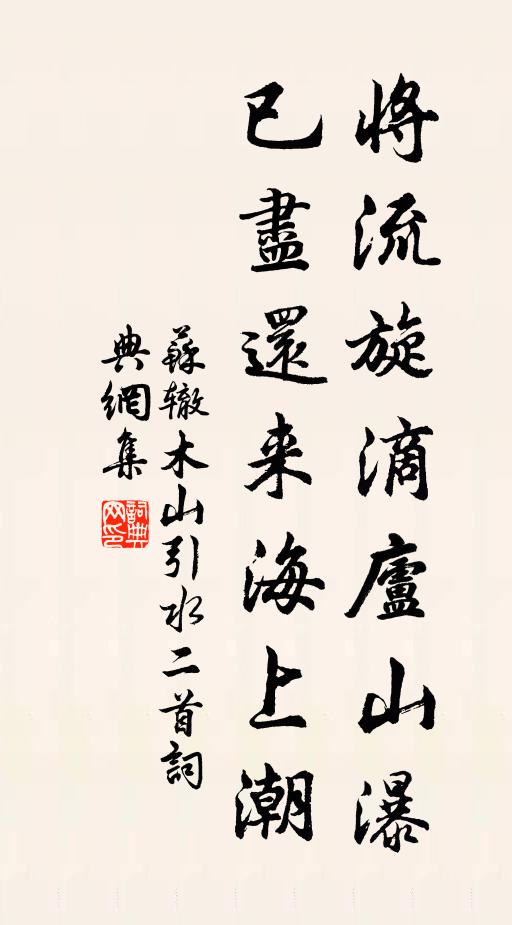 將流旋滴廬山瀑
已盡還来海上潮
蘇辙木山引水二首詞
典網集
詞典网印